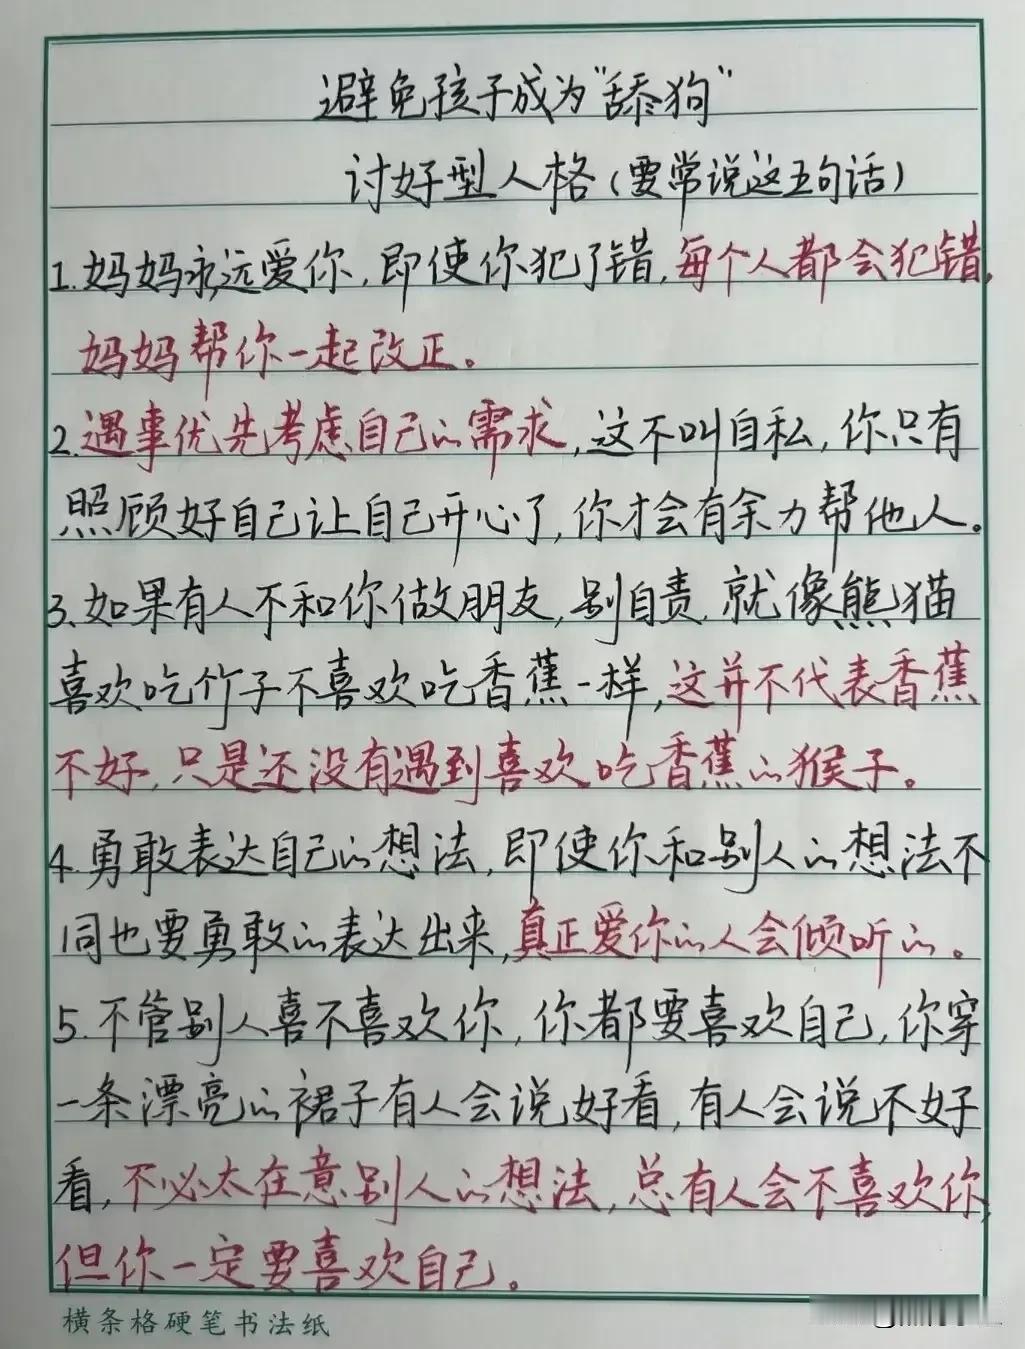 避免孩子成为“舔狗”
讨好型人格(要常说这五句话)
1.妈妈永远爱你,即使你犯了错,每个人都会犯错,
妈妈帮你一起改正。
2.遇事优先考虑自己的需求,这不叫自私,你只有
照顾好自己让自己开心了,你才会有余力帮他人。
3、如果有人不和你做朋友,别自责.就像熊猫
喜欢吃竹子不喜欢吃香蕉一样,这并不代表香蕉
不好,只是还没有遇到喜欢吃香蕉的猴子。
4.勇敢表达自己的想法,即使你和别人的想法不
同也要勇敢的表达出来,真正爱你的人会倾听的。
5.不管别人喜不喜欢你,你都要喜欢自己,你穿
一条漂亮的裙子有人会说好看,有人会说不好
看,不必太在意别人的想法,总有人会不喜欢你,
但你一定要喜欢自己。
横条格硬笔书法纸